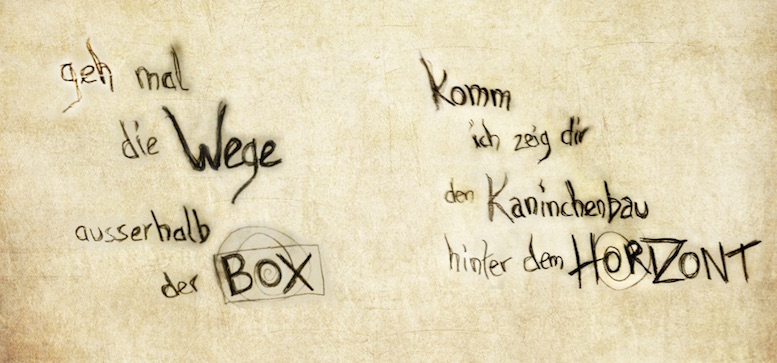 geh mal
die Wege
ausserhalb
der BOX
Komm
ich zeig dir
den Kaninchenbau
hinter dem HORIZONT